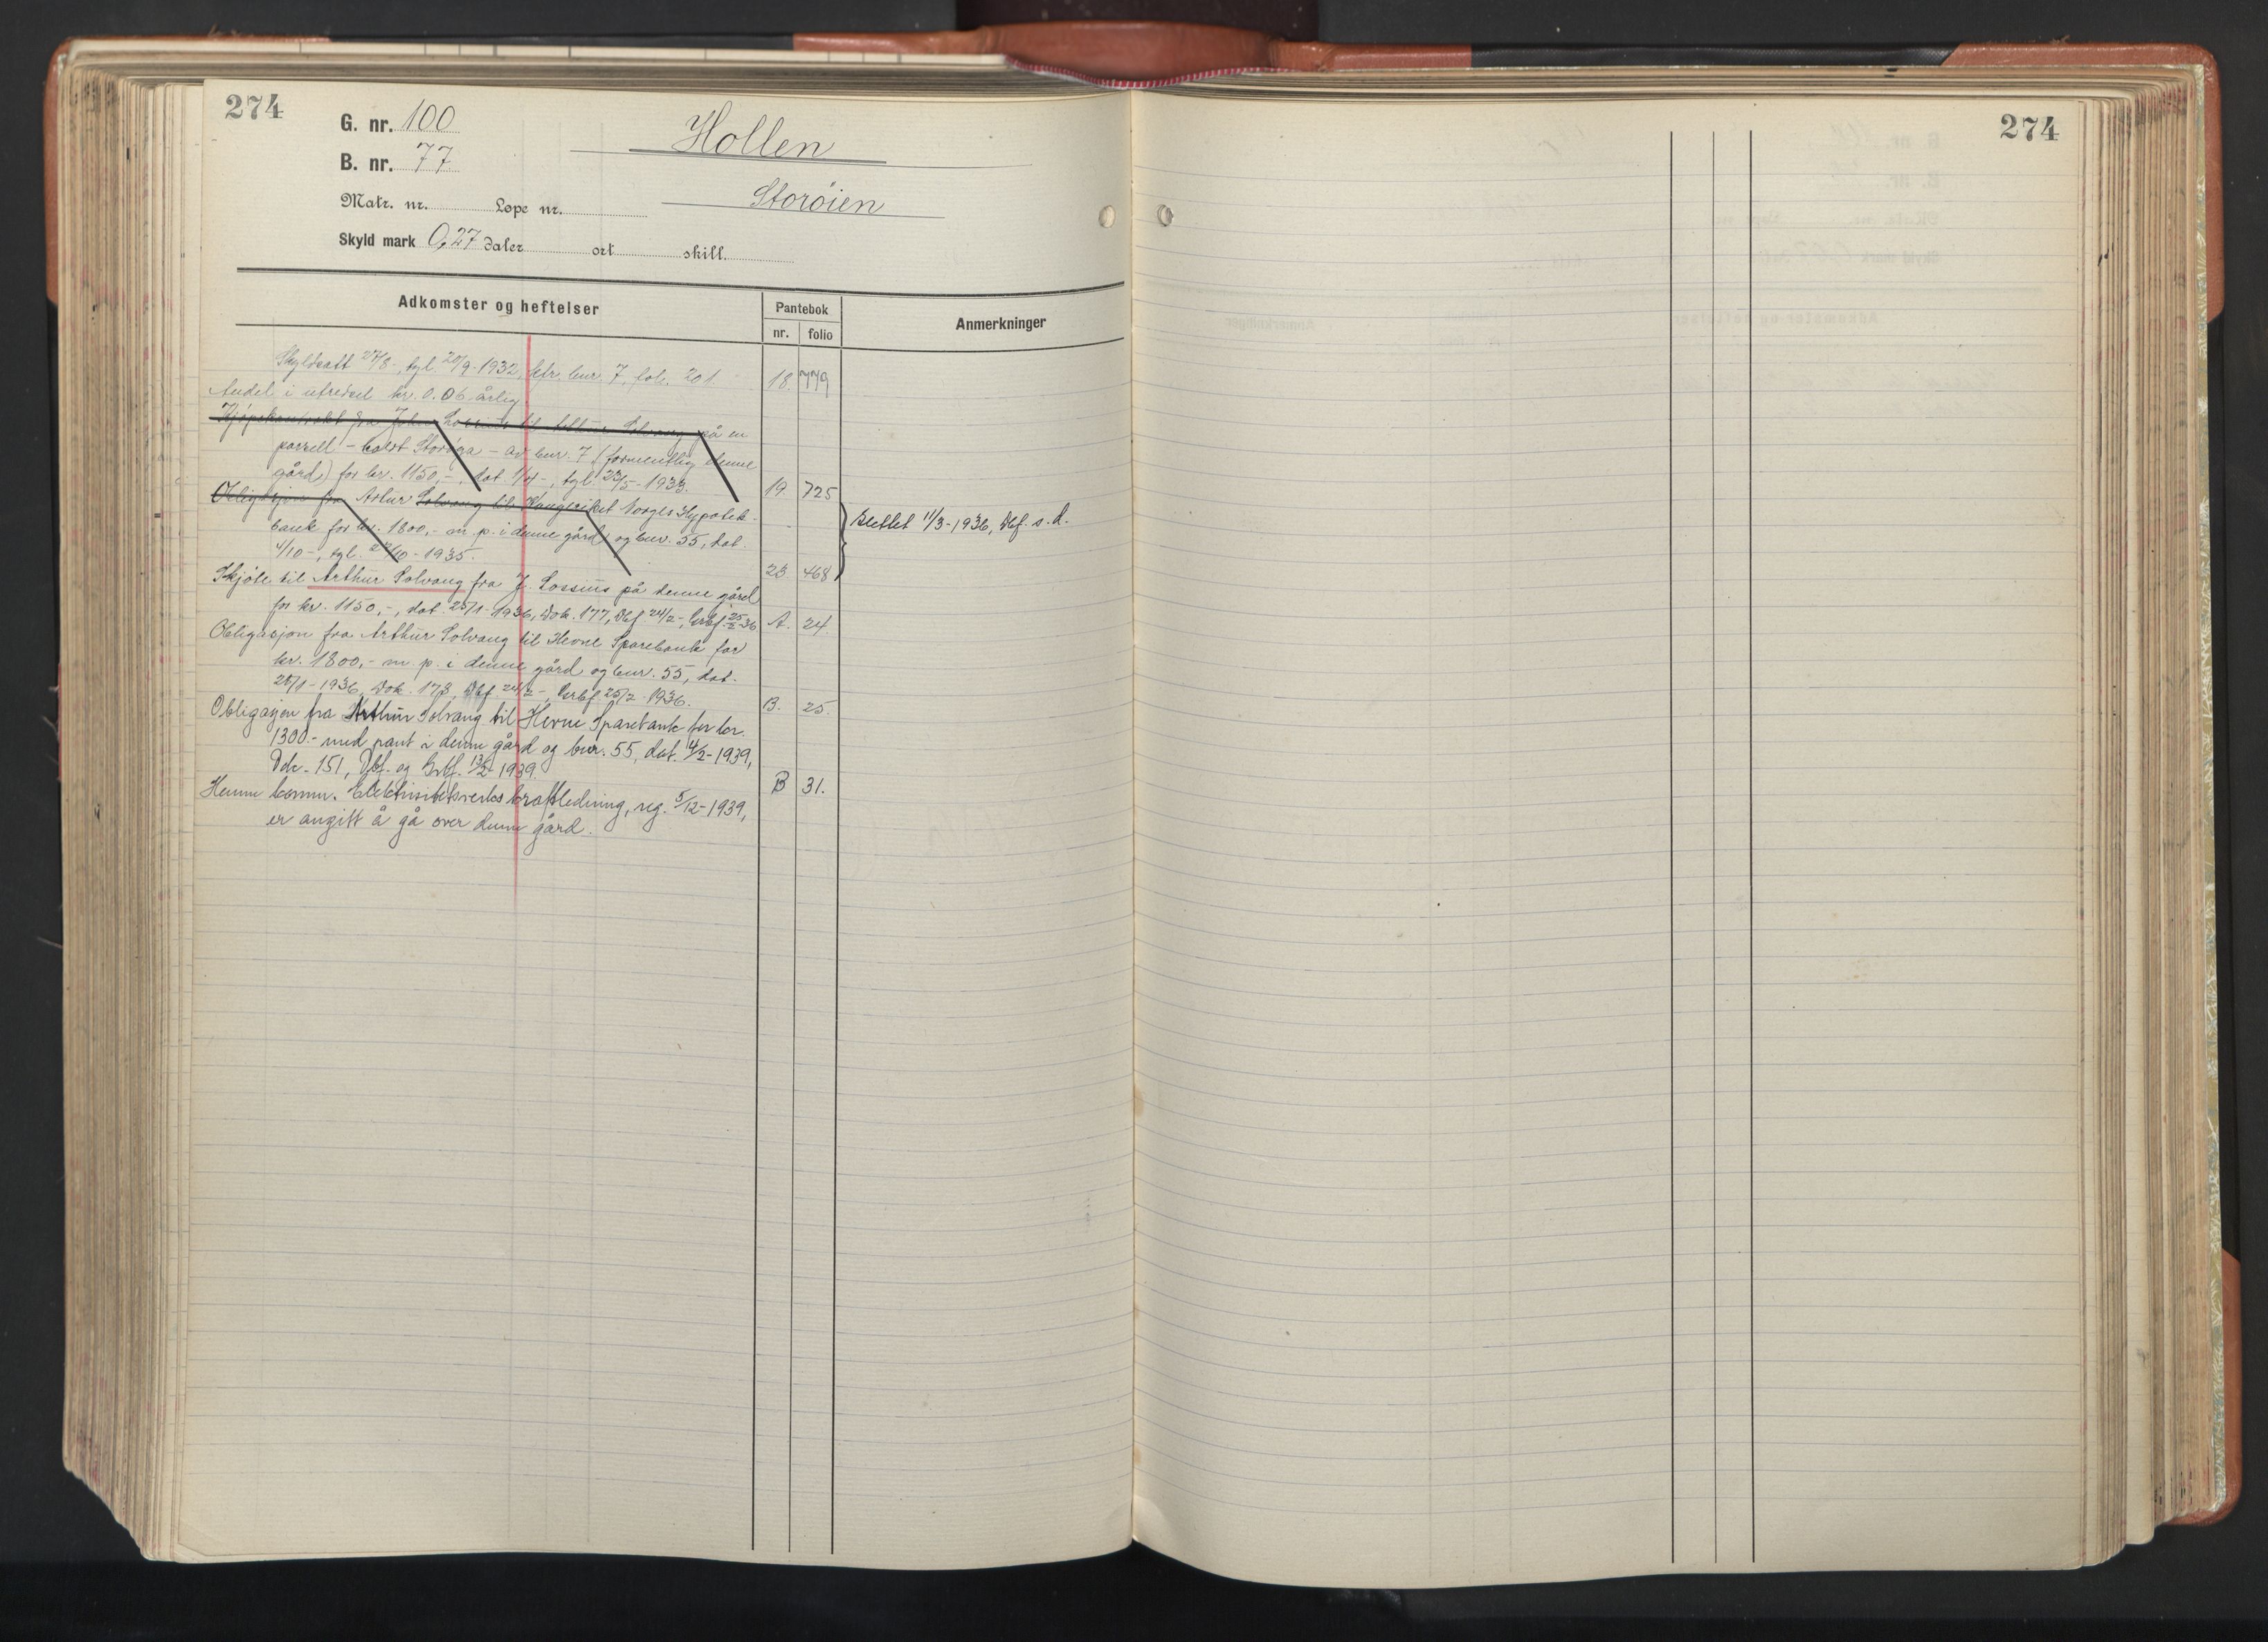 274
G. nr. 100
Hollen
B. nr. 77
Storøien
Matr. nr. Løpe nr.
Skyld mark 0,27 daler ort skill.
Adkomster og heftelser
Pantebok
nr. folio
Anmerkninger
Skyldsatt 27/8-, tgl. 20/9-1932, kfr. bnr. 7, fol. 201. 18. 779
Andel i utredsel kr. 0.06 årlig.
Kjøpekontrakt fra Johan Lossius til Arthur Solvang på en
parsell - kalt Storøya - av bnr. 7 (formentlig denne
gård) for kr. 1150,-, dat. 1/4-, tgl. 23/5-1933. 19. 725
Obligasjon fra Artur Solvang til Kongeriket Norges Hypotek-
bank for kr. 1800,- m. p. i denne gård og bnr. 55, dat.
4/10-, tgl. 24/10-1935. 23 468
Slettet 11/3-1936, Dbf. s. d.
Skjøte til Arthur Solvang fra J. Lossius på denne gård
for kr. 1150,-, dat. 25/1-1936, Dok. 177, Dbf 24/2-, Grbf. 25/2-36 A. 24.
Obligasjon fra Arthur Solvang til Hevne Sparebank for
kr. 1800,- m. p. i denne gård og bnr. 55, dat.
25/1-1936, Dok. 178, Dbf 24/2-, Grbf 25/2-1936. B. 25.
Obligasjon fra Arthur Solvang til Hevne Sparebank for kr.
1300.- med pant i denne gård og bnr. 55, dat. 4/2-1939,
Dok. 151, Dbf. og Grbf. 13/2-1939. B 31.
Hemne komm. Elektrisitetsverks kraftledning, reg. 5/12-1939,
er angitt å gå over denne gård.
274